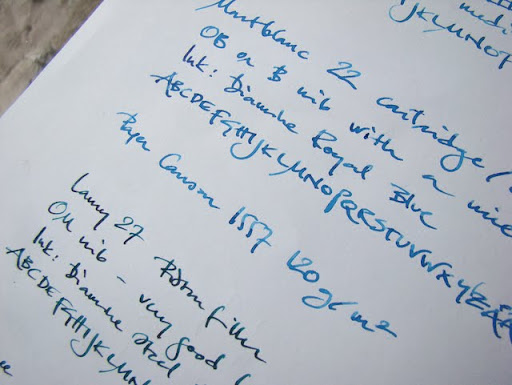 medi
JKLMNOP
Montblanc 22 cartridge /
OB or B nib with a nice
Ink: Diamine Royal Blue
ABCDEFGHIJKLMNOPQRSTUVWXYZ
Paper Canson 1557 120 g/m²
Lamy 27 Piston filler
OM nib – very good (
Ink: Diamine Steel
ABCDEFGHIJKLMN